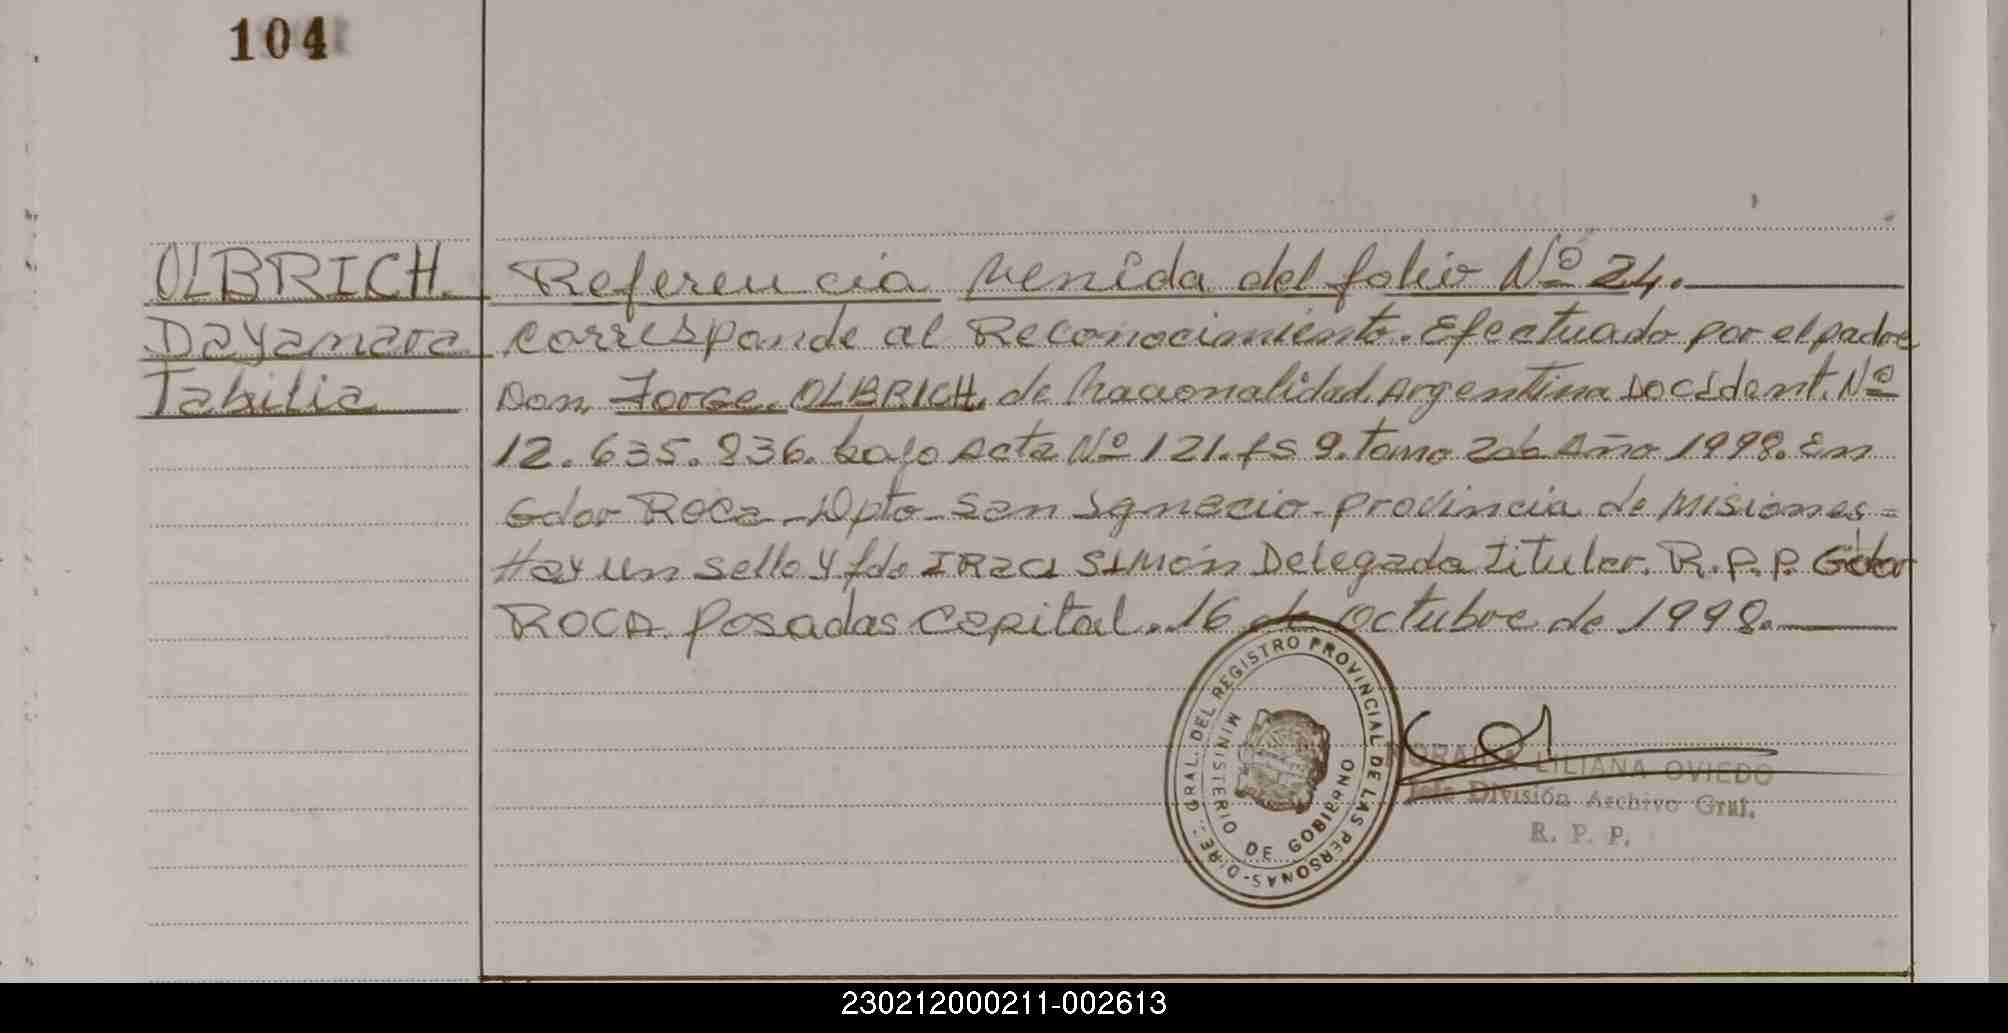 104
OLBRICH.
Dayamara
Tabilia
Referencia venida del folio Nº 24.
corresponde al Reconocimiento. Efectuado por el padre
Don. Jorge. OLBRICH, de Nacionalidad. Argentina Doc Ident. Nº
12.635.836. bajo Acta Nº 121. fs 9. tomo Año 1998. En
Gdor Roca - Dpto - San Ignacio - provincia de Misiones =
Hay un sello y fdo Simón Delegada titular. R.P.P. Gdor
ROCA. Posadas Capital. 16 de Octubre de 1998.
DIRE. GRAL. DEL REGISTRO PROVINCIAL DE LAS PERSONAS-
MINISTERIO DE GOBIERNO
LILIANA OVIEDO
Jefe División Archivo Gral.
R. P. P.
230212000211-002613